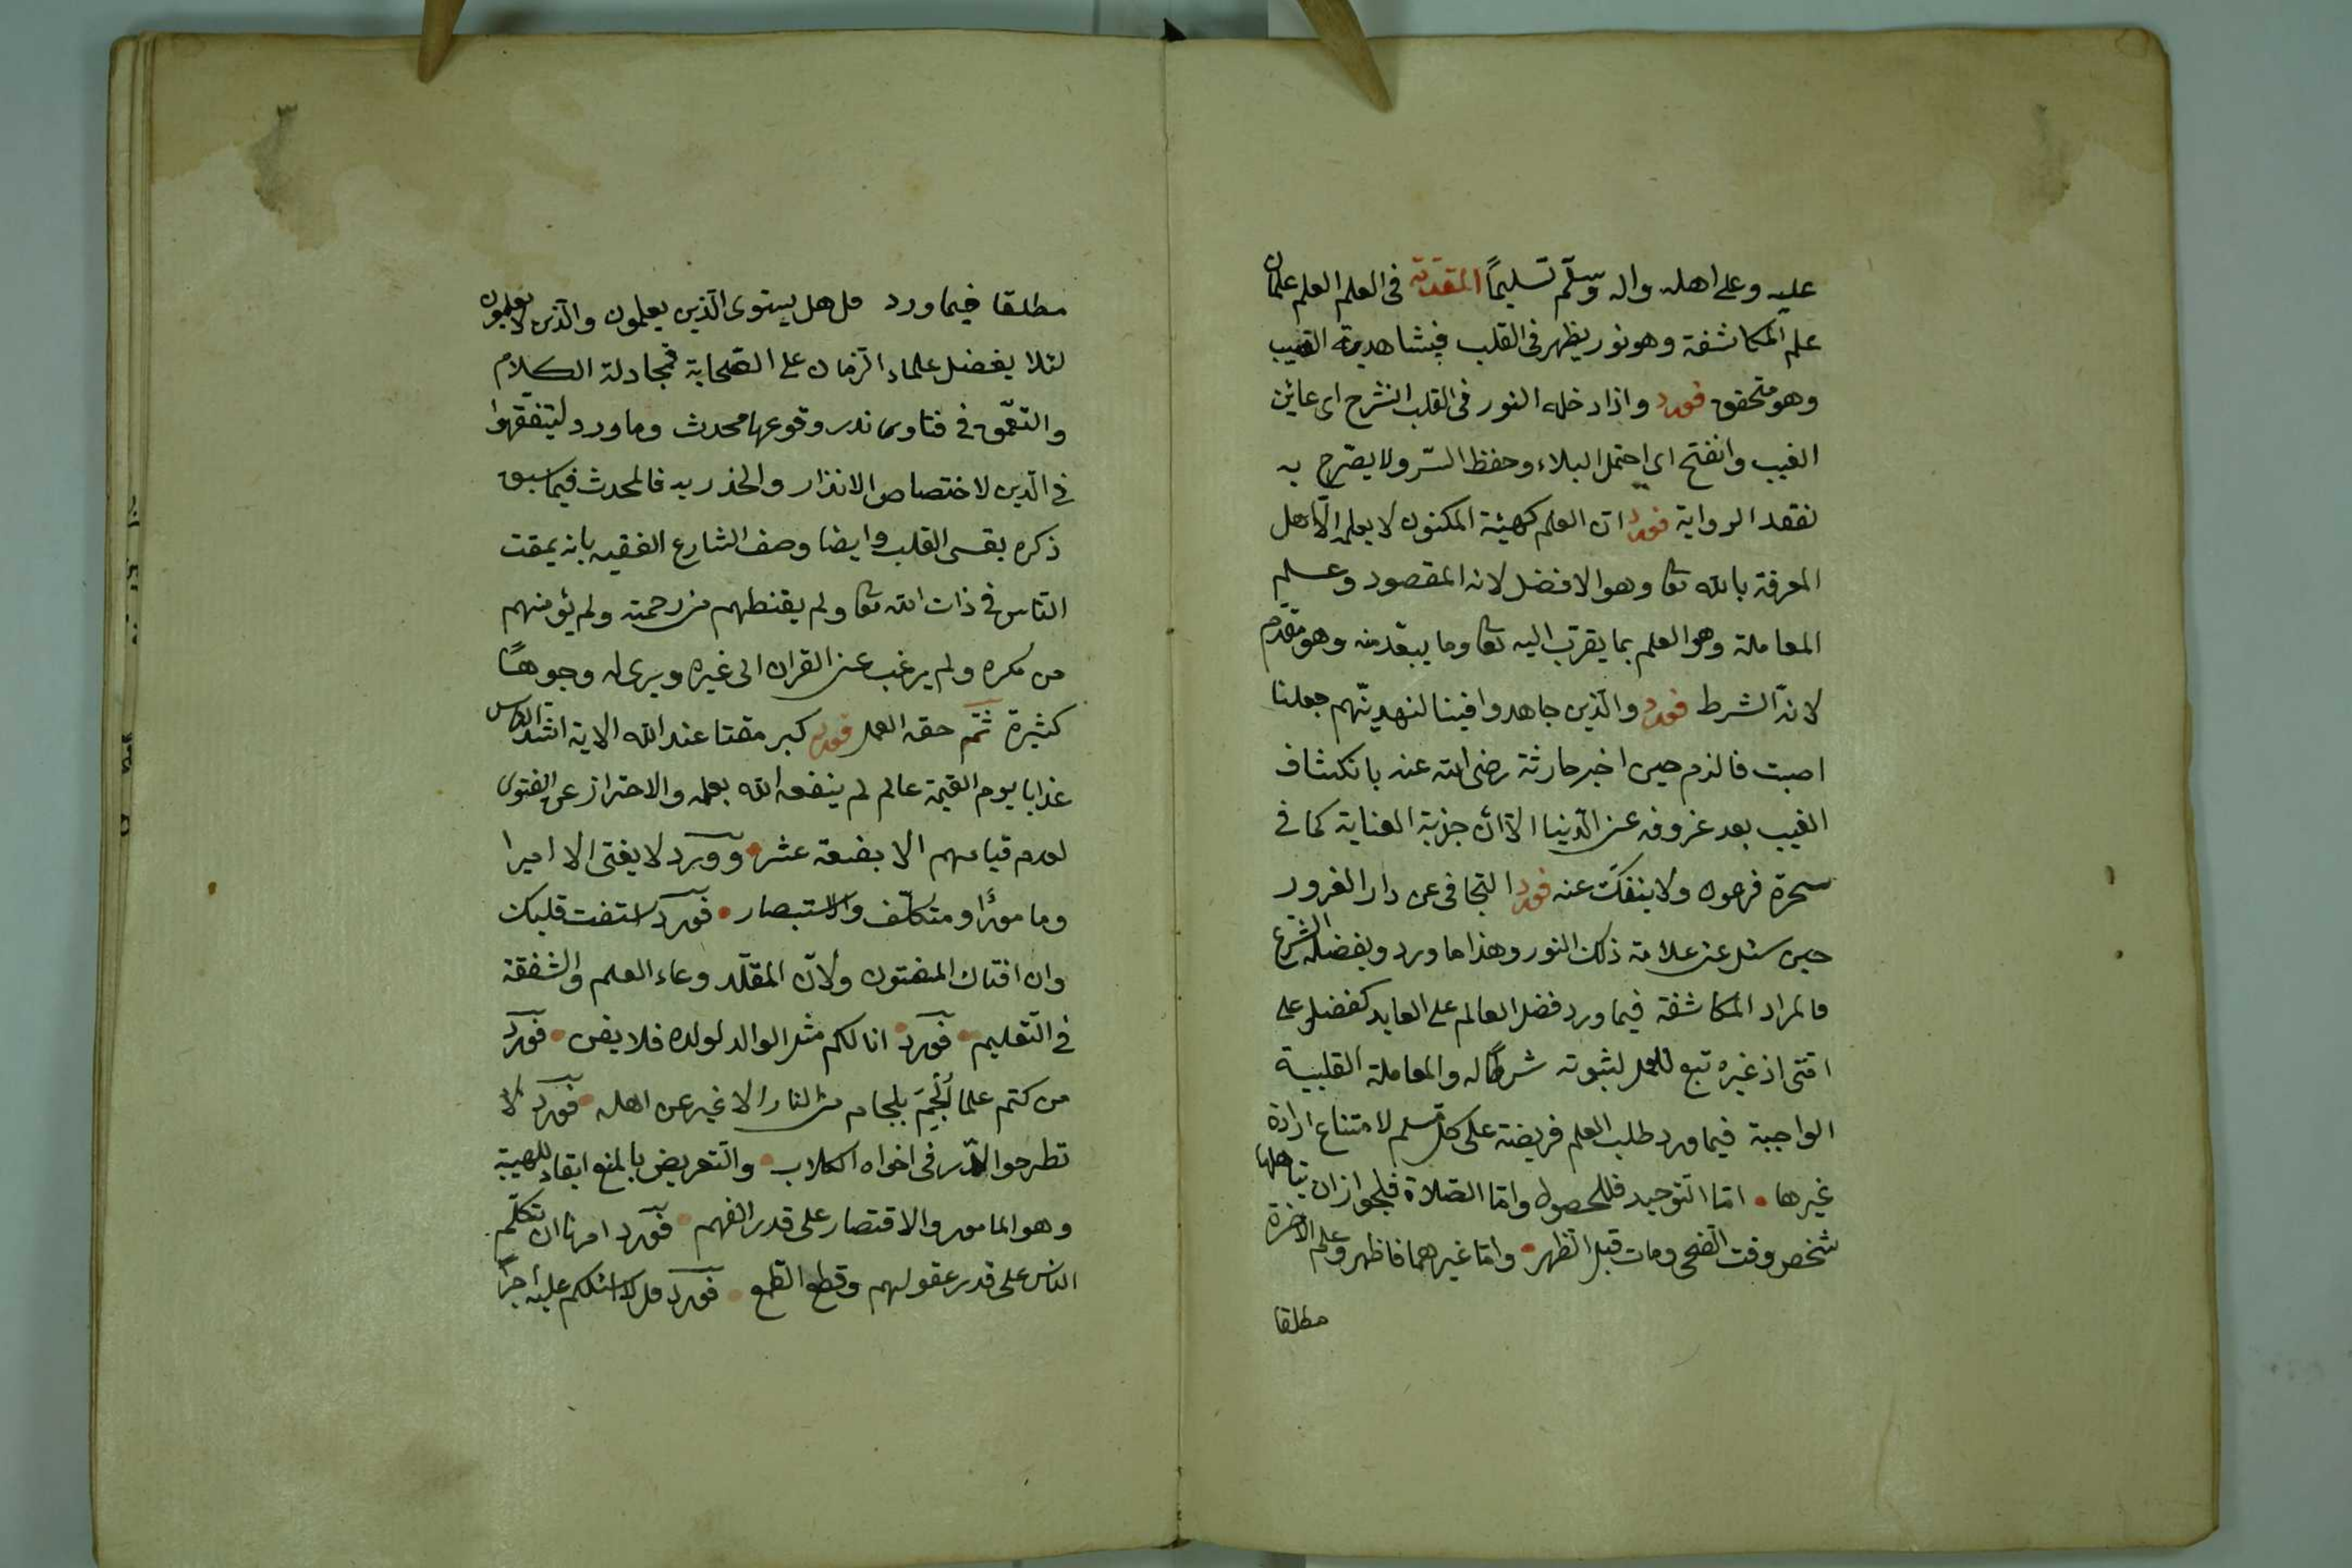 عليه وعلى اهله واله وسلّم تسليماً المقدّمة فى العلم العلم علمان
علم المكاشفة وهو نور يظهر فى القلب فيشاهد به الغيب
وهو متحقق فورد واذا دخله النور فى القلب انشرح اى عاين
الغيب وانفتح اى احتمل البلاء وحفظ السّر ولا يصّرح به
لفقد الرواية فورد ان العلم كهيئة المكنون لا يعلمه الّا اهل
المعرفة بالله تعا وهو الافضل لانه المقصود وعلم
المعاملة وهو العلم بما يقرب اليه تعا وما يبعّد منه وهو مقدّم
لانه الشرط فورد والّذين جاهدوا فينا لنهدينّهم جعلنا
اصبت فالزم حين اخبر حارثة رضى الله عنه بانكشاف
الغيب بعد عزوفه عن الدّنيا الا ان جذبة العناية كما فى
سحرة فرعون ولا ينفكّ عنه فورد التجافى عن دار الغرور
حين سئل عن علامة ذلك النور وهذا ما ورد ويفضله الشرع
فالمراد المكاشفة فيما ورد فضل العالم على العابد كفضلى على
امّتى اذ غيره تبع للعمل لثبوته شرطاً له والمعاملة القلبية
الواجبة فيما ورد طلب العلم فريضة على كل مسلم لامتناع ارادة
غيرها • امّا التوحيد فللحصول وامّا الصّلاة فلجواز ان يتاهلها
شخص وقت الضّحى ومات قبل الظهر • وامّا غيرهما فاظهر وعلم الاخرة
مطلقا
مطلقا فيما ورد قل هل يستوى الّذين يعلمون والّذين لا يعلمون
لئلا يفضل علماء الزمان على الصّحابة فمجادلة الكلام
والتعمّق فى فتاوى ندر وقوعها محدث وما ورد ليتفقّهوا
فى الّدين لاختصاص الانذار والحذر به فالمحدث فيما سبق
ذكره يقسى القلب وايضا وصف الشارع الفقيه بانه يمقت
النّاس فى ذات الله تعا ولم يقنطهم من رحمته ولم يؤمنهم
من مكره ولم يرغب عن القران الى غيره ويرى له وجوهاً
كثيرة ثمّ حقه العمل فورد كبر مقتا عند الله الاية اشدّ الناس
عذابا يوم القيمة عالم لم ينفعه الله بعلمه والاحتراز عن الفتوى
لعدم قيامهم الا بضعة عشر • وورد لا يفتى الا اميرا
ومامورًا او متكلّف والاستبصار • فورد استفت قلبك
وان افتاك المفتون ولانّ المقلّد وعاء العلم والشفقة
فى التّعليم • فورد • انا لكم مثل الوالد لولده فلا يضن • فورد
من كتم علما اُلجِمَ بلجام من النار الا غير عن اهله • فورد لا
تطرحوا الدّر فى افواه الكلاب • والتعريض بالمنع ابقاء للهيبة
وهو المامور والاقتصار على قدر الفهم • فورد امرنا ان نكلّم
الناس على قدر عقولهم وقطع الطّمع • فورد قل لا اسئلكم عليه اجراً